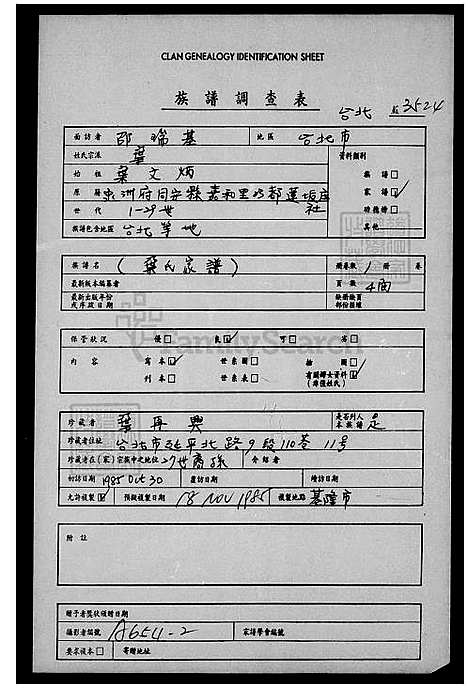 CLAN GENEALOGY IDENTIFICATION SHEET
族譜調查表
台北 3524
面訪者 邵瑞基 地區 台北市
姓氏宗派 葉 資料類別
始祖 葉文炳 族譜□
原籍 泉洲府同安縣嘉和里 都蓮坂庄社 家譜☑
世代 1-29世
族譜包含地區 台北等地 其他
族譜名 (葉氏家譜) 冊卷數 1 冊 卷
最新版本編纂者 頁數 4面
最新出版年份或序跋日期 缺冊缺頁部份註城
保管狀況 優□ 良☑ 可□ 劣□
內容 寫本☑ 世系圖□ 插圖□
刊本□ 世系表□ 有關婦女資料☑
FamilySearch
珍藏者 葉再興 是否列入本族譜 是
珍藏者住址 台北市延平北路9段110巷11号
珍藏者在(家)宗族中之地位 27世裔孫 介紹者
初訪日期 1985 Oct 30 覆訪日期 續訪日期
允許複製☑ 預擬複製日期 18 NOV 1985 複製地點 基隆市
附註
贈予者獎狀頒贈日期
攝影者編號 A654-2 家譜學會編號
要求複本□ 寄贈地址